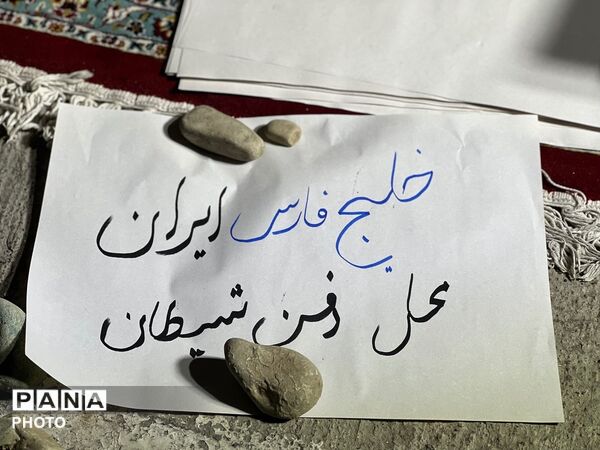 خلیج فارس ایران
محل دفن شیطان
PANA
PHOTO